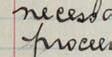 necessa
procee